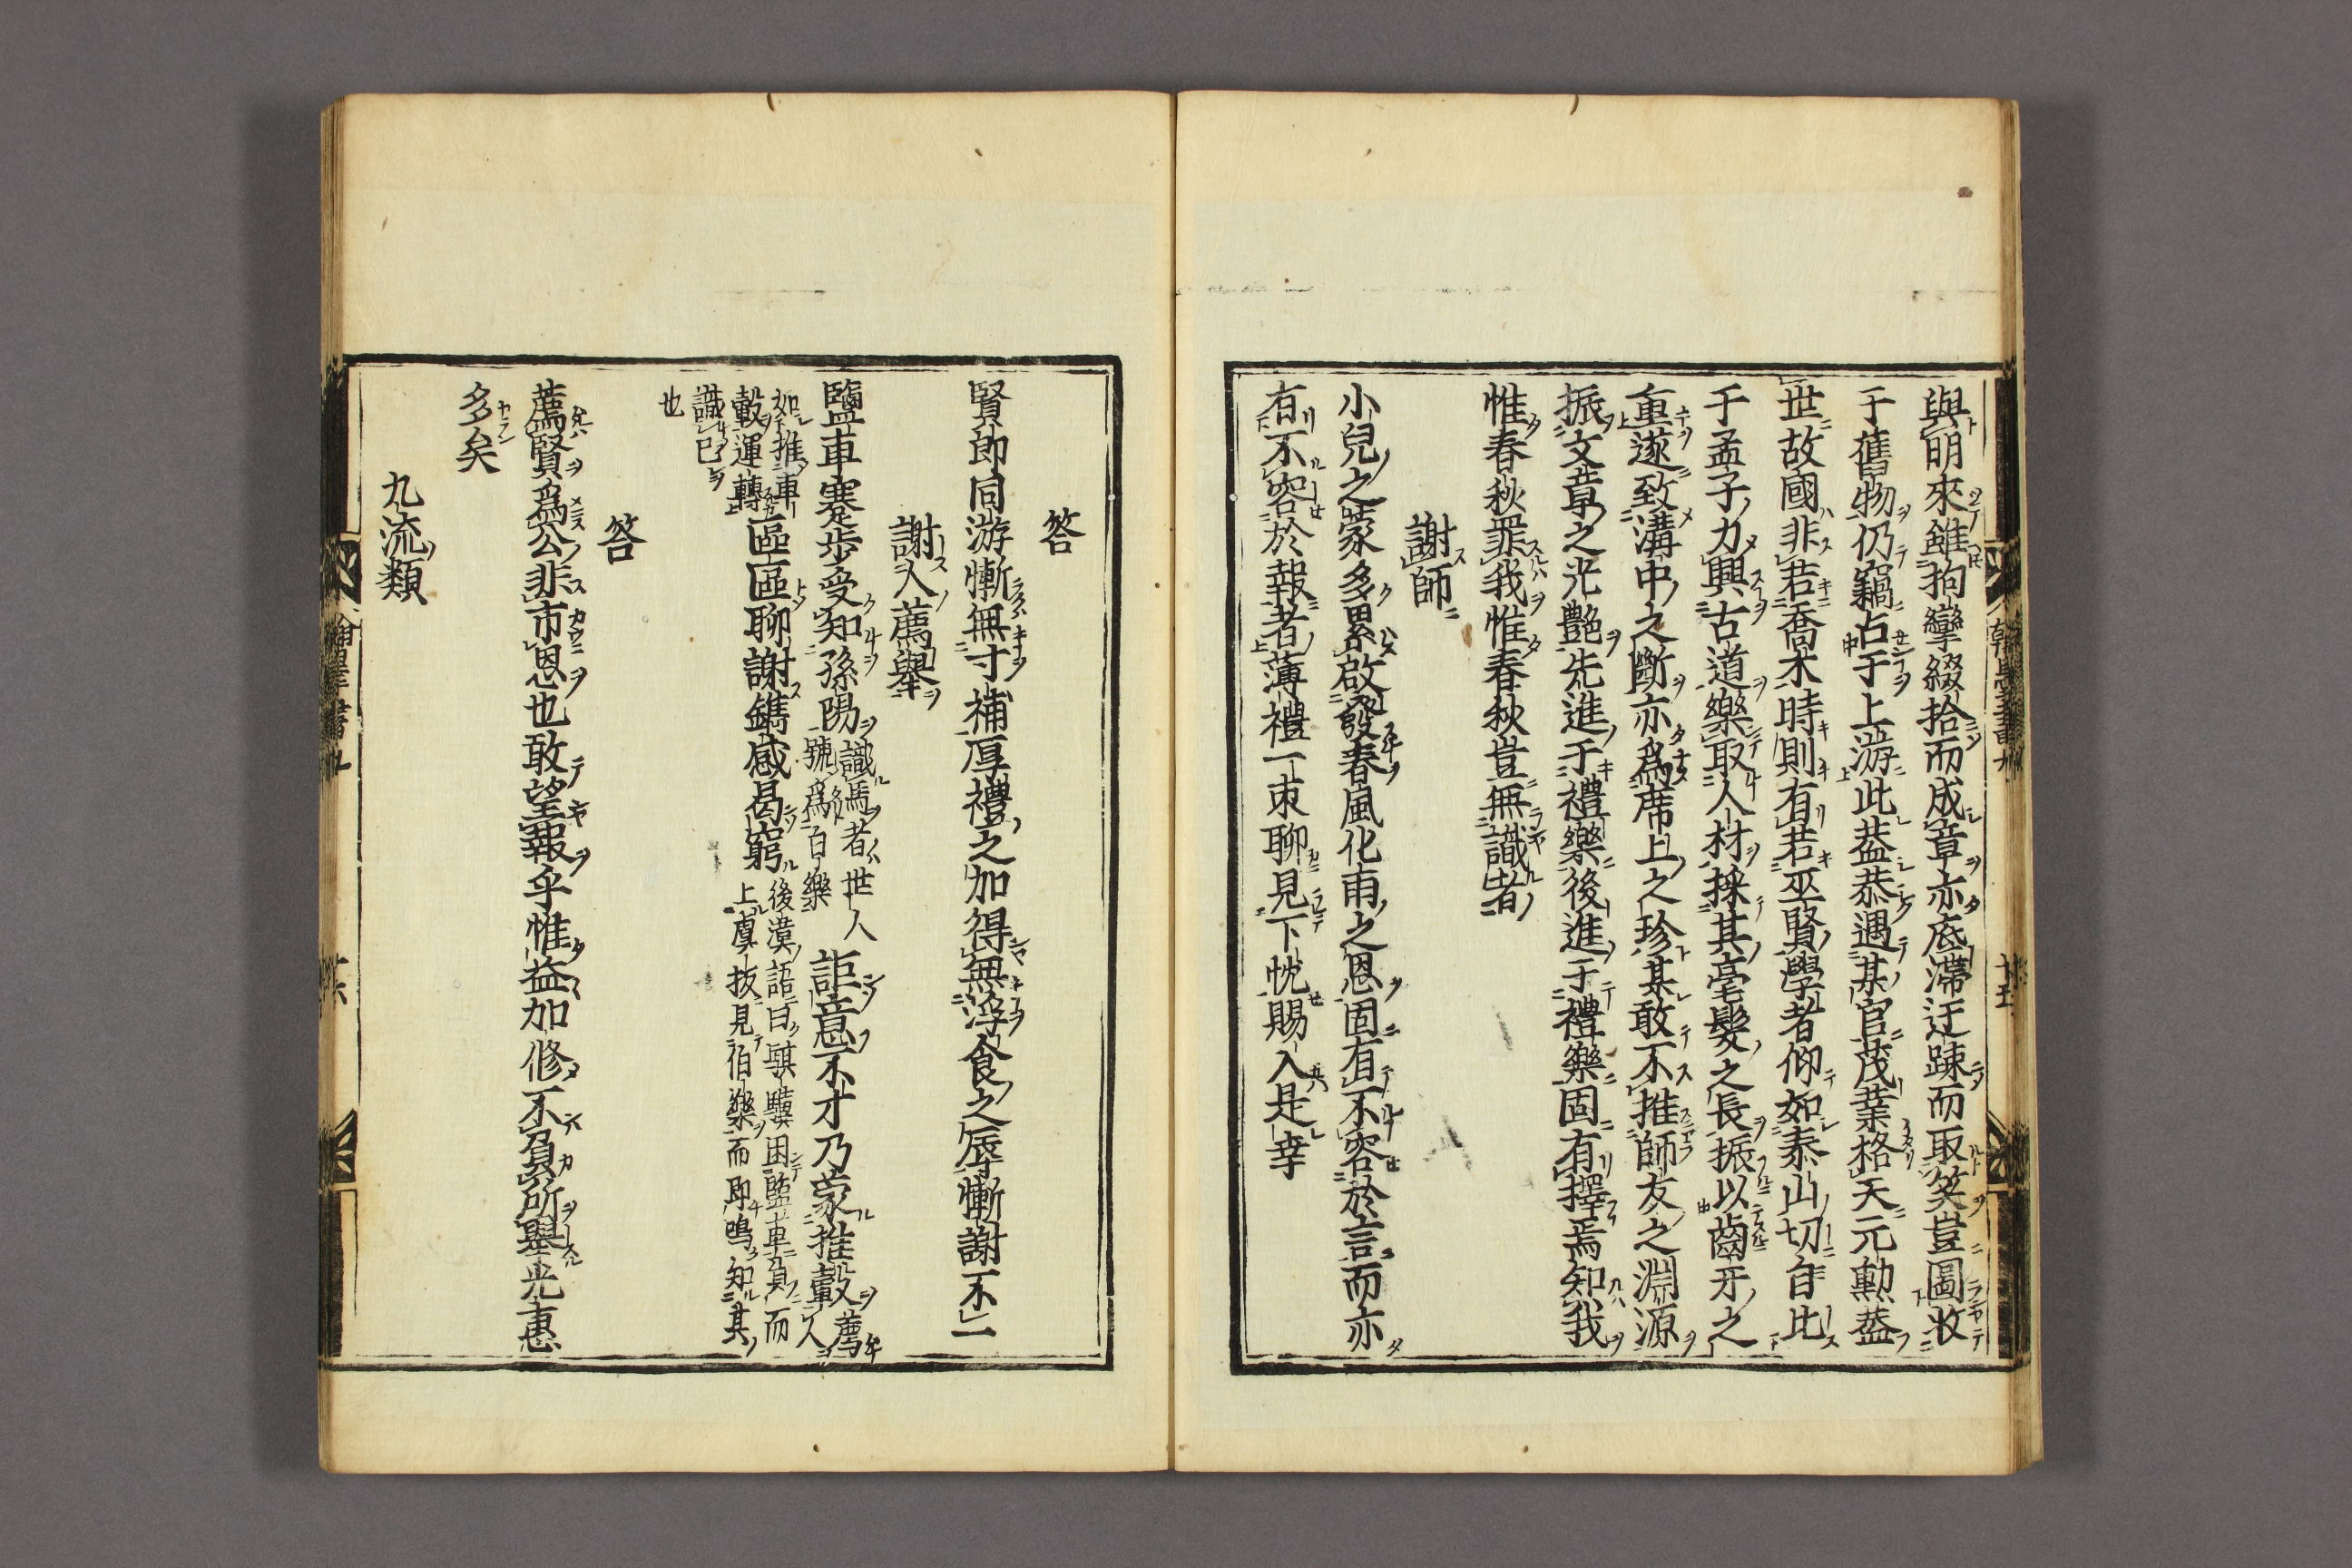 與明來雖拘攣綴拾而成章亦底滯迂踈而取笑豈圖收
于舊物仍竊占于上游此葢恭遇某官茂業格天元勳葢
世故國非若喬木時則有若巫賢學者仰如泰山切自比
于孟子力興古道樂取人材採其毫髮之長振以齒牙之
重遂致溝中之斷亦爲席上之珍某敢不推師友之淵源
振文章之光艷先進于禮樂後進于禮樂固有擇焉知我
惟春秋罪我惟春秋豈無識者
謝師
小兒之蒙多累啟發春風化雨之恩固有不容於言而亦
有不容於報者薄禮一束聊見下忱賜入是幸
答
賢郎同游慚無寸補厚禮之加得無浮食之辱慚謝不一
謝人薦舉
鹽車蹇步受知孫陽識馬者世人號爲百樂詎意不才乃蒙推轂薦人
如推車轂運轉區區聊謝鐫感曷窮後漢語曰騏驥困鹽車負而上虞抜見伯樂而即鳴知其
識已
也
答
薦賢爲公非市恩也敢望報乎惟益加修不負所舉光惠
多矣
九流類